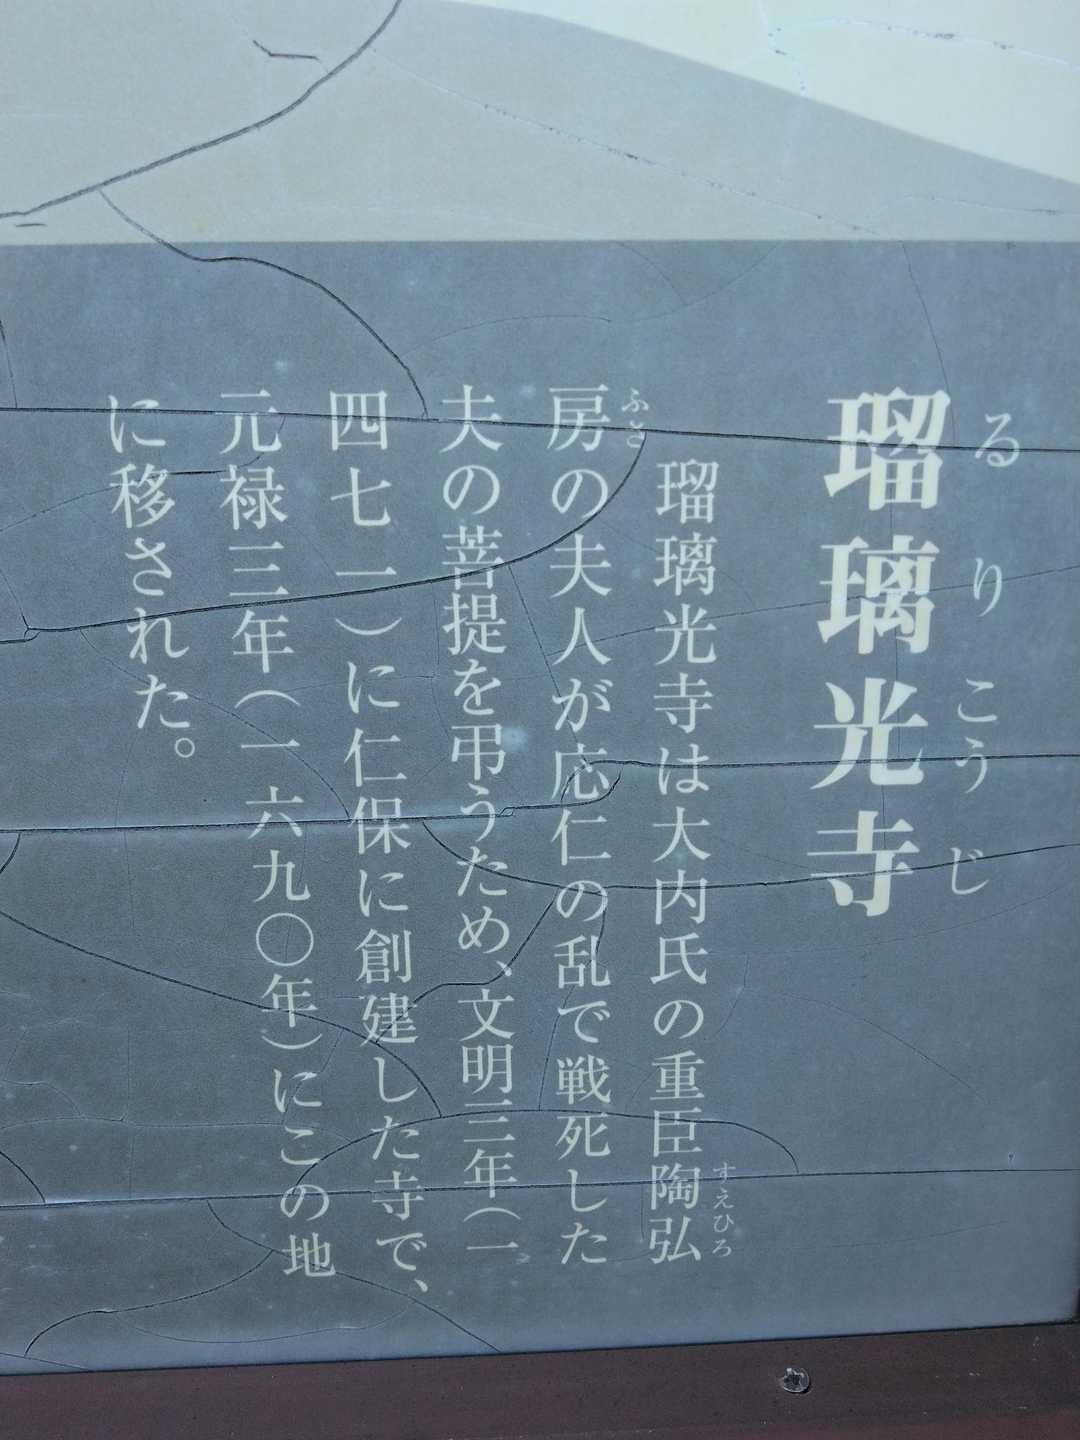 瑠璃光寺
るりこうじ
瑠璃光寺は大内氏の重臣陶弘
すえひろ
房の夫人が応仁の乱で戦死した
ふさ
夫の菩提を弔うため、文明三年（一
四七一）に仁保に創建した寺で、
元禄三年（一六九〇年）にこの地
に移された。